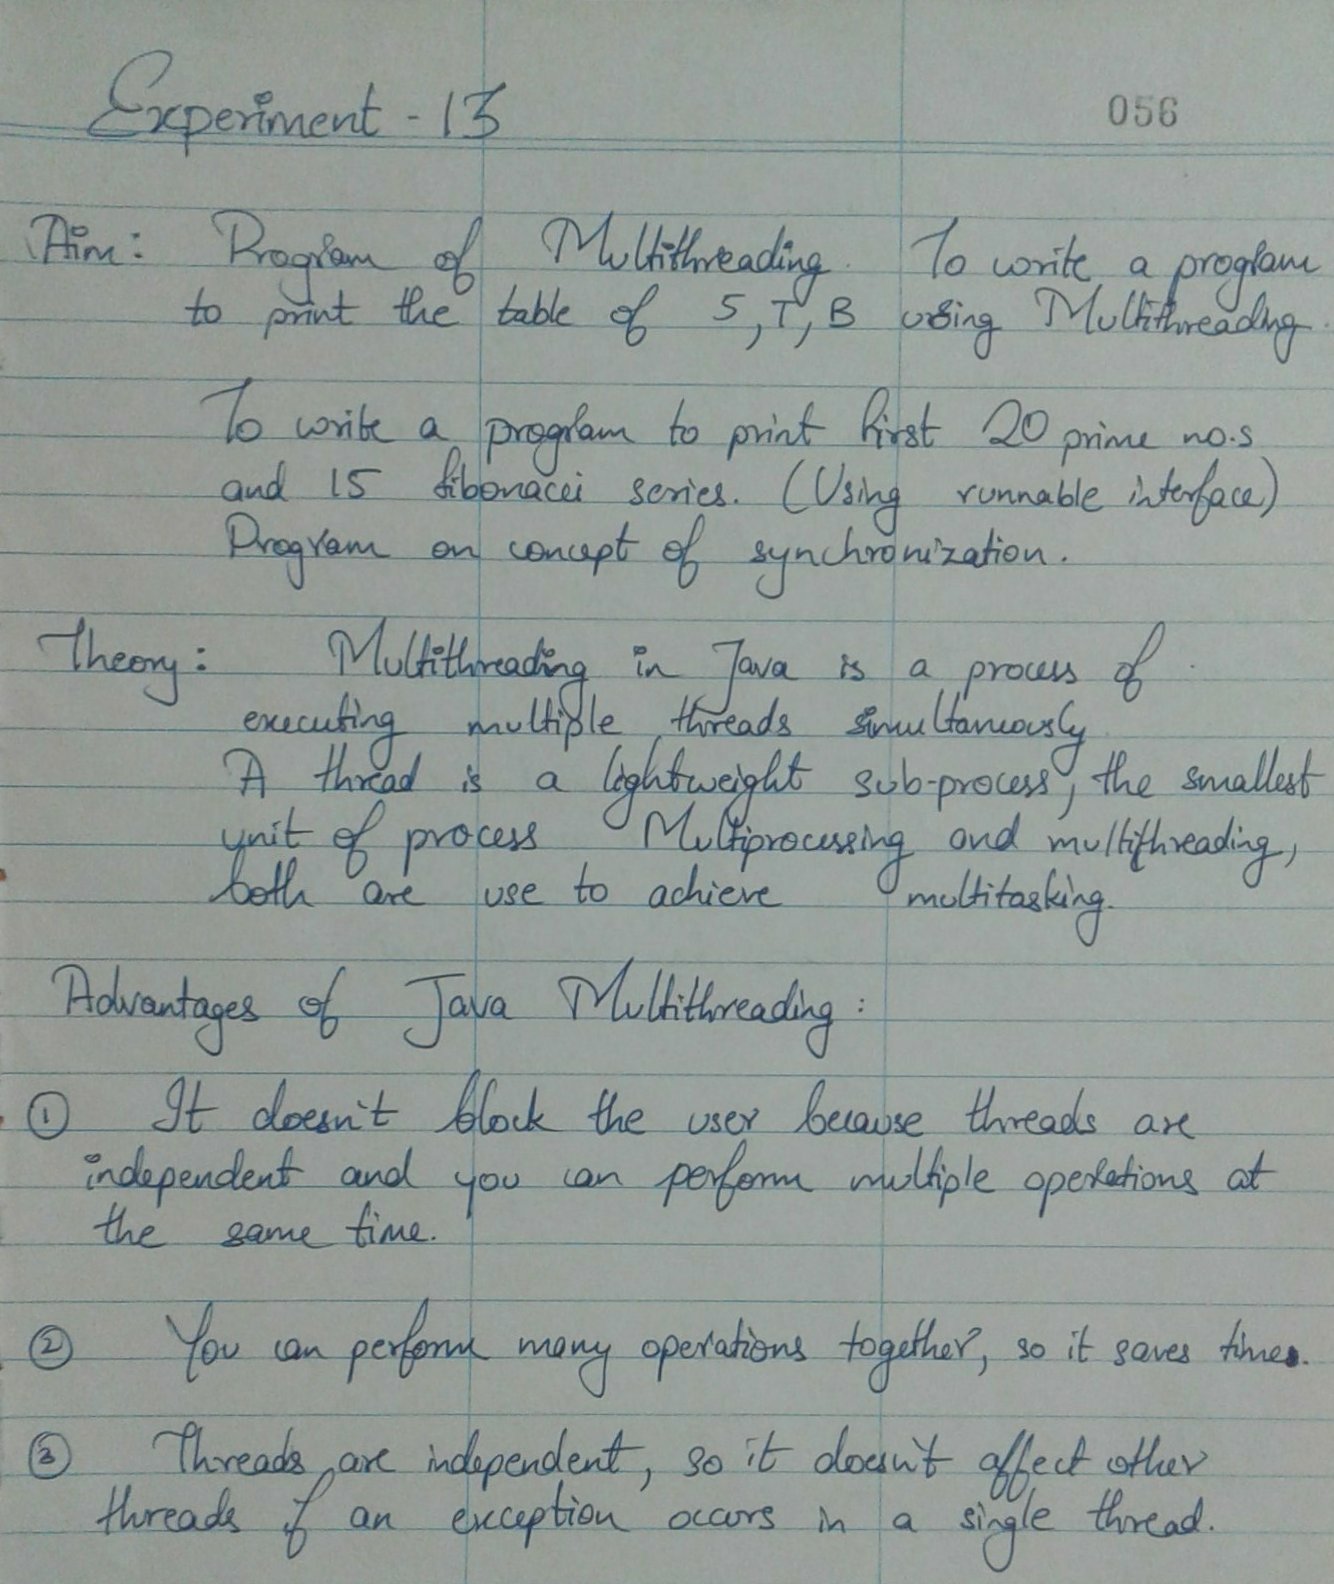 Experiment - 13
056
Aim: Program of Multithreading. To write a program
to print the table of 5, 7, 13 using Multithreading.
To write a program to print first 20 prime no.s
and 15 fibonacci series. (Using runnable interface)
Program on concept of synchronization.
Theory: Multithreading in Java is a process of
executing multiple threads simultaneously
A thread is a lightweight sub-process, the smallest
unit of process Multiprocessing and multithreading,
both are use to achieve multitasking.
Advantages of Java Multithreading:
① It doesn't block the user because threads are
independent and you can perform multiple operations at
the same time.
② You can perform many operations together, so it saves time.
③ Threads are independent, so it doesn't affect other
threads if an exception occurs in a single thread.